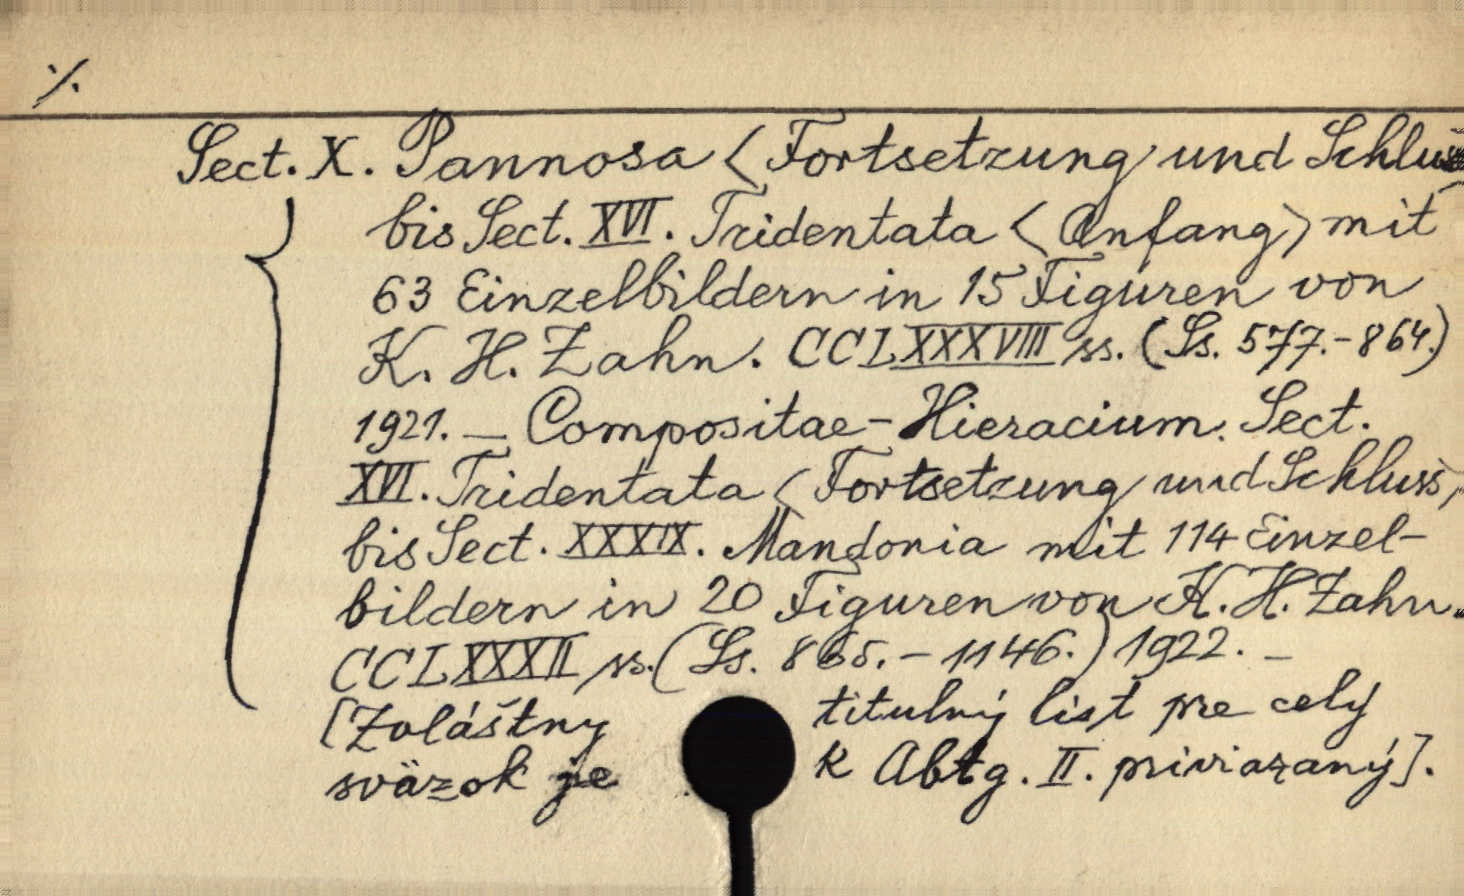 ./.
Sect. X. Pannosa <Fortsetzung und Schluss
bis Sect. XVI. Tridentata <Anfang> mit
63 Einzelbildern in 15 Figuren von
K. H. Zahn. CCLXXXVIII ss. (Ss. 577.-864.)
1921. — Compositae-Hieracium. Sect.
XVI. Tridentata <Fortsetzung und Schluss,
bis Sect. XXXIX. Mandonia mit 114 Einzel-
bildern in 20 Figuren von K. H. Zahn.
CCLXXXII ss. (Ss. 865.-1146.) 1922. —
[Zvláštny titulný list pre celý
sväzok je k Abtg. II. priviazaný].